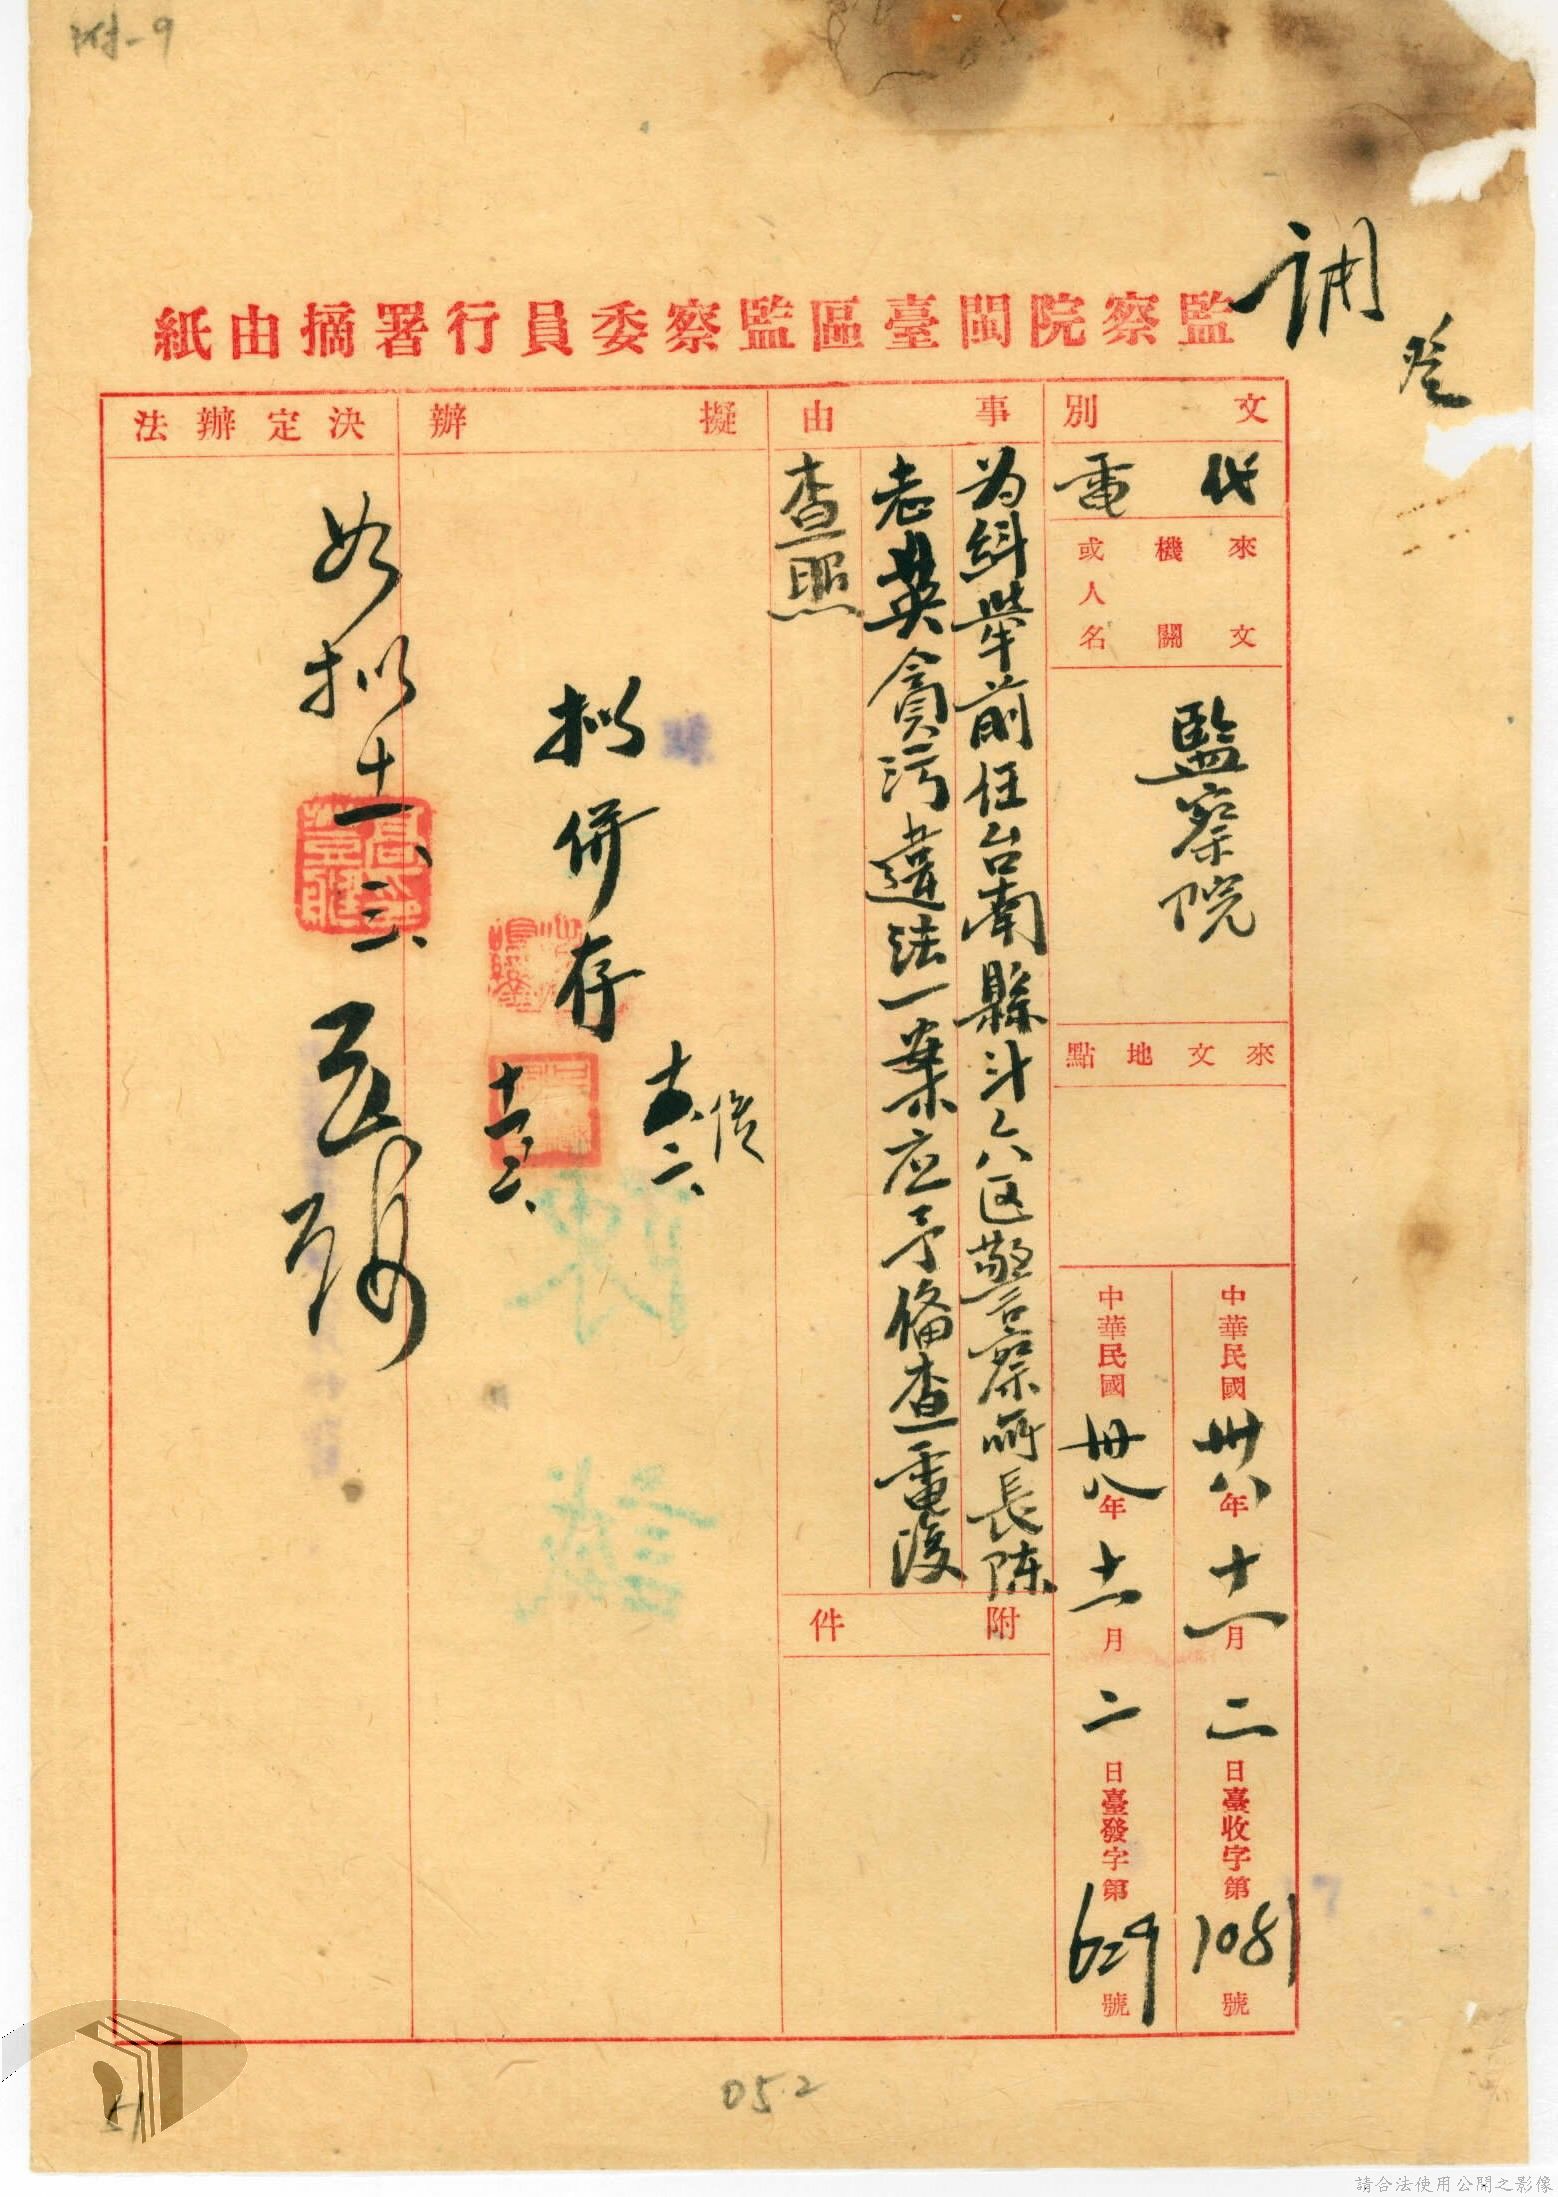 附-9
調
登
監察院閩臺區監察委員行署摘由紙
文別
代電
來文機關或人名
監察院
來文地點
中華民國卅八年十一月二日臺收字第1081號
中華民國卅八年十一月二日臺發字第629號
事由
为糾舉前任台南縣斗六区警察所長陈
老英貪污違法一案应予備查電復
查照
附件
擬辦
拟併存
十一、二、
十一、三、
決定辦法
如拟 十一、三、
052
51
請合法使用公開之影像